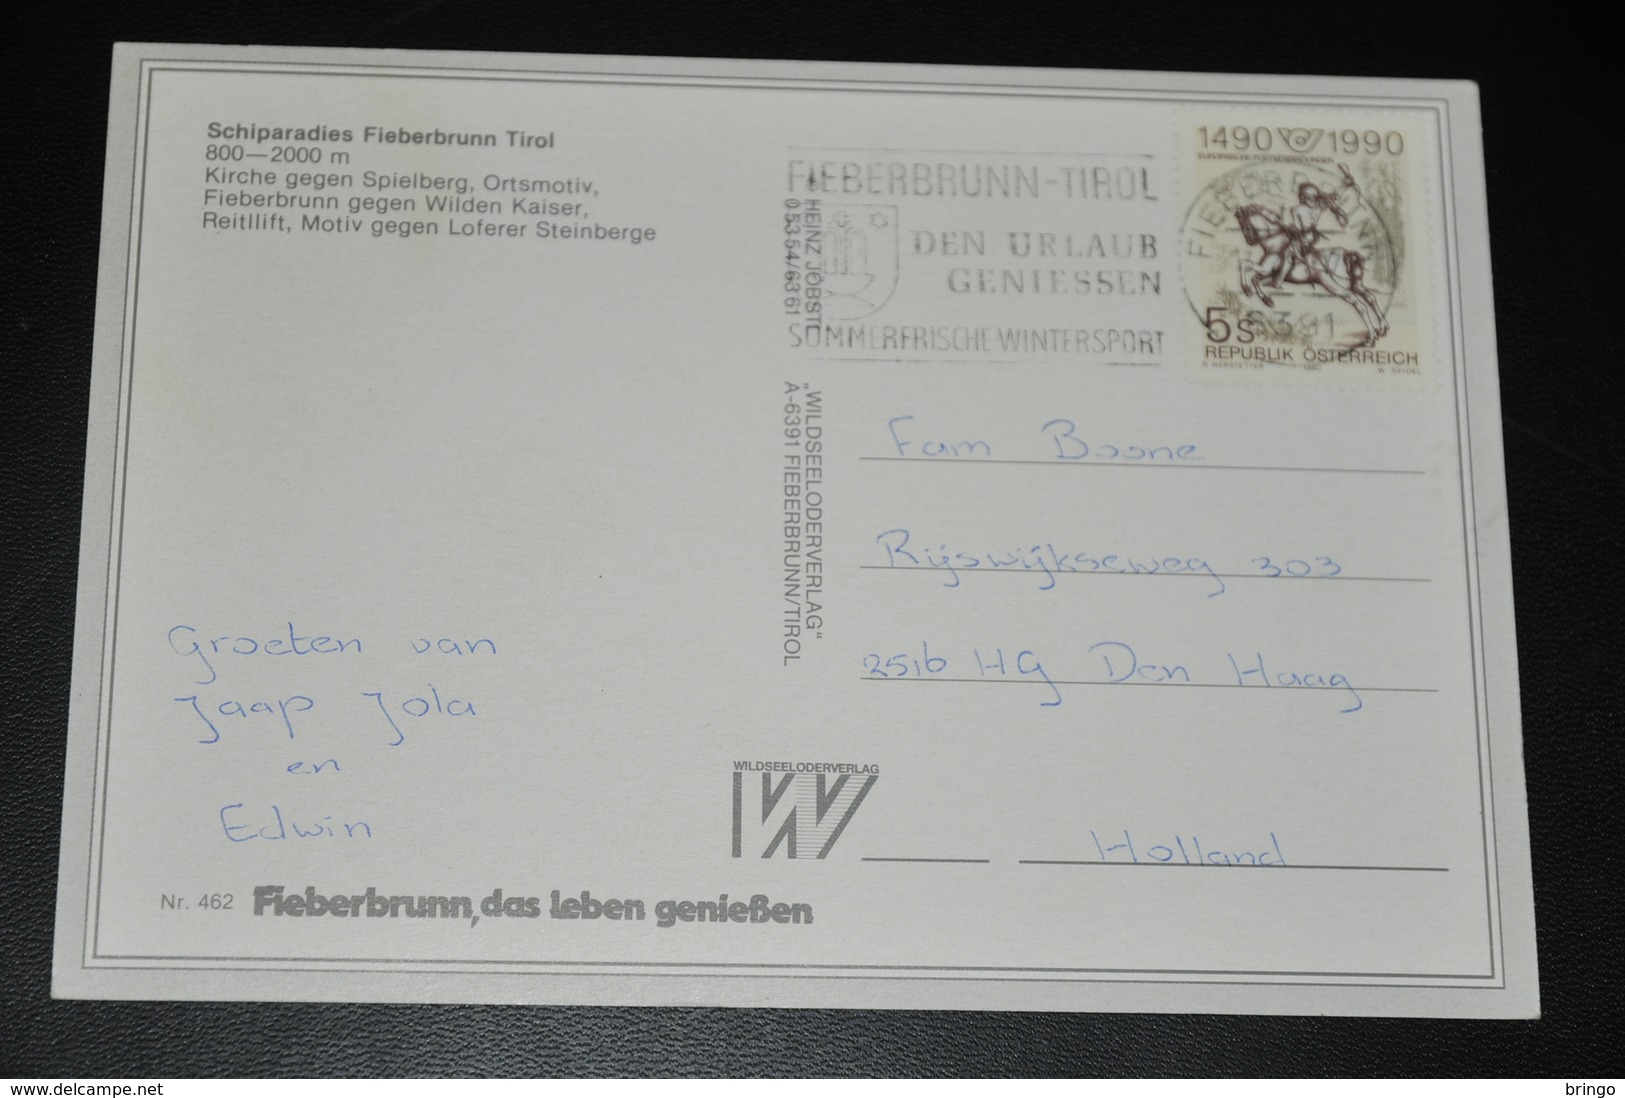 Schiparadies Fieberbrunn Tirol
800—2000 m
Kirche gegen Spielberg, Ortsmotiv,
Fieberbrunn gegen Wilden Kaiser,
Reitllift, Motiv gegen Loferer Steinberge
FIEBERBRUNN-TIROL
DEN URLAUB
GENIESSEN
SOMMERFRISCHE-WINTERSPORT
1490 1990
EUROPÄISCHE POSTVERBINDUNGEN
FIEBERBRUNN
6391
5s
REPUBLIK ÖSTERREICH
1990
W. SEIDEL
HEINZ JÖBSTL
05354/6361
„WILDSEELODERVERLAG“
A-6391 FIEBERBRUNN/TIROL
Fam Boone
Rijswijkseweg 303
2516 HG Den Haag
Holland
Groeten van
Jaap Jola
en
Edwin
WILDSEELODERVERLAG
Nr. 462 Fieberbrunn, das leben genießen
www.delcampe.net
bringo